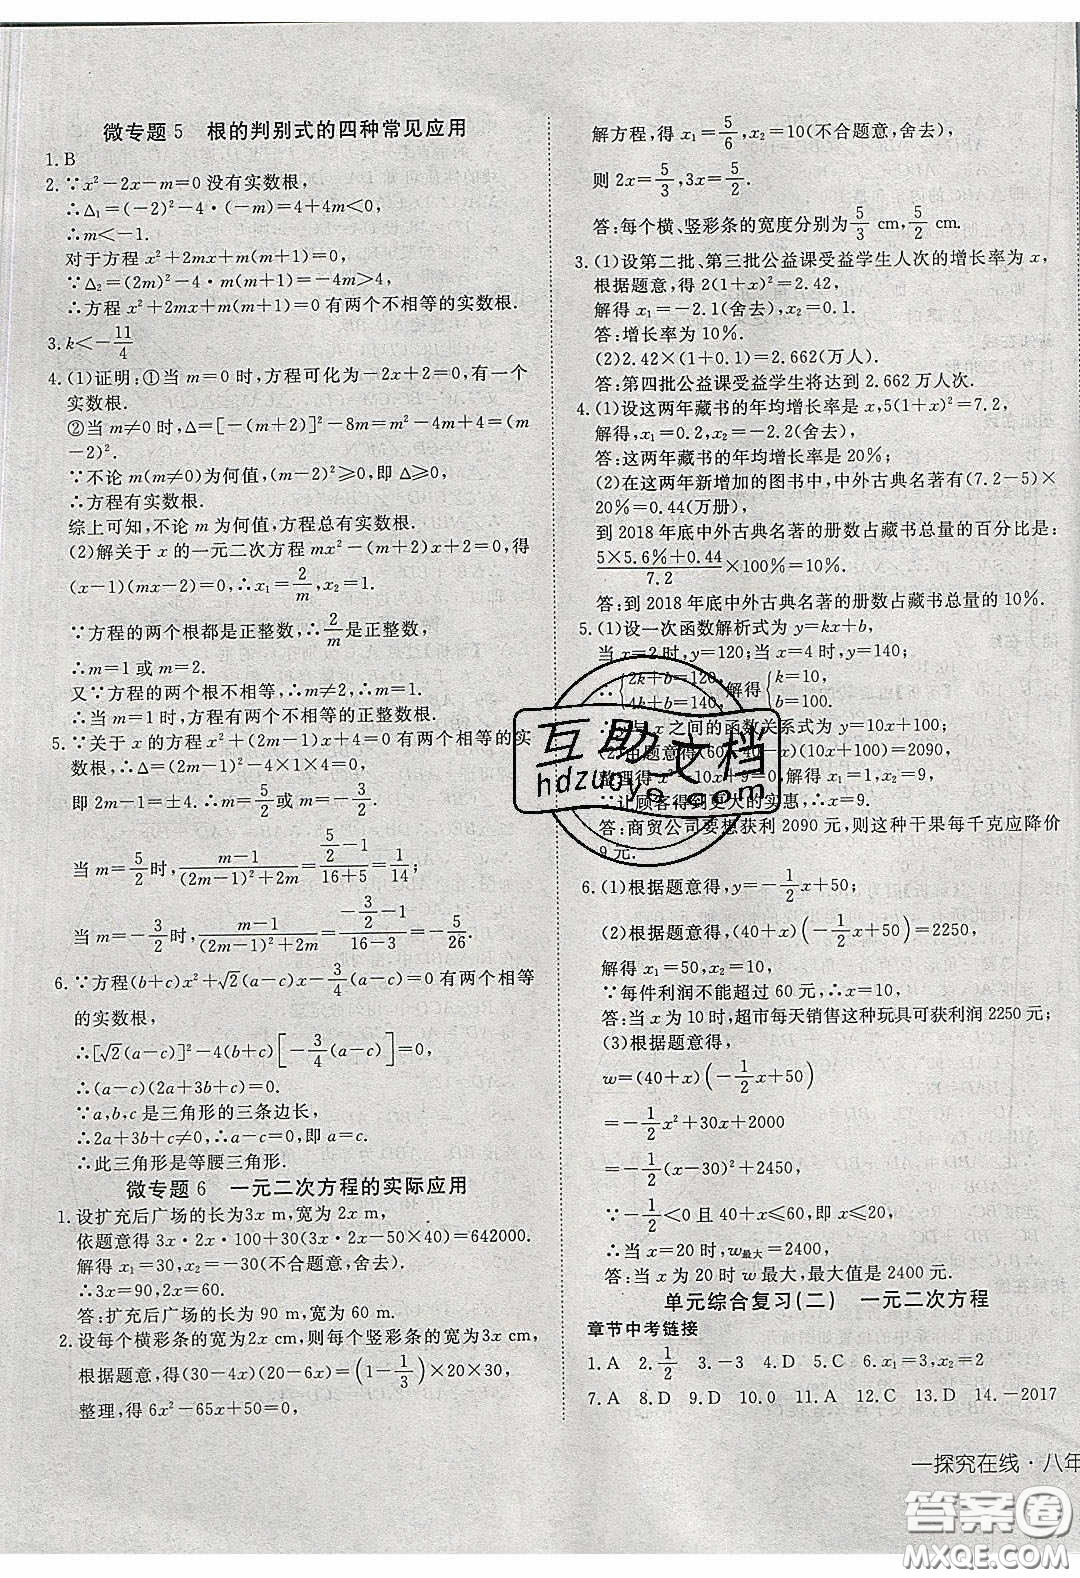 微专题 5　根的判别式的四种常见应用
1. B
2. ∵x²－2x－m＝0 没有实数根,
∴Δ₁＝(－2)²－4・(－m)＝4＋4m＜0,
∴m＜－1.
对于方程 x²＋2mx＋m(m＋1)＝0,
∵Δ₂＝(2m)²－4・m(m＋1)＝－4m＞0,
∴方程 x²＋2mx＋m(m＋1)＝0 有两个不相等的实数根.
3. k＜－11/4
4. (1)证明:①当 m＝0 时,方程可化为－2x＋2＝0,有一个
实数根.
②当 m≠0 时,Δ＝[－(m＋2)]²－8m＝m²－4m＋4＝(m
－2)².
∵不论 m(m≠0)为何值,(m－2)²≥0,即 Δ≥0,
∴方程有实数根.
综上可知,不论 m 为何值,方程总有实数根.
(2)解关于 x 的一元二次方程 mx²－(m＋2)x＋2＝0,得
(x－1)(mx－2)＝0,∴x₁＝2/m,x₂＝1.
∵方程的两个根都是正整数,∴2/m是正整数,
∴m＝1 或 m＝2.
又∵方程的两个根不相等,∴m≠2,∴m＝1.
∴当 m＝1 时,方程有两个不相等的正整数根.
5. ∵关于 x 的方程 x²＋(2m－1)x＋4＝0 有两个相等的实
数根,∴Δ＝(2m－1)²－4×1×4＝0,
即 2m－1＝±4. ∴m＝5/2或 m＝－3/2.
当 m＝5/2时,(m－1)/((2m－1)²＋2m)＝(5/2－1)/(16＋5)＝1/14;
当 m＝－3/2时,(m－1)/((2m－1)²＋2m)＝(－3/2－1)/(16－3)＝－5/26.
6. ∵方程(b＋c)x²＋√2(a－c)x－3/4(a－c)＝0 有两个相等
的实数根,
∴[√2(a－c)]²－4(b＋c)[－3/4(a－c)]＝0,
∴(a－c)(2a＋3b＋c)＝0,
∵a,b,c 是三角形的三条边长,
∴2a＋3b＋c≠0,∴a－c＝0,即 a＝c.
∴此三角形是等腰三角形.
微专题 6　一元二次方程的实际应用
1. 设扩充后广场的长为3x m,宽为 2x m,
依题意得 3x・2x・100＋30(3x・2x－50×40)＝642000.
解得 x₁＝30,x₂＝－30(不合题意,舍去).
∴3x＝90,2x＝60.
答:扩充后广场的长为 90 m,宽为 60 m.
2. 设每个横彩条的宽为2x cm,则每个竖彩条的宽为3x cm,
根据题意,得(30－4x)(20－6x)＝(1－1/3)×20×30,
整理,得 6x²－65x＋50＝0,
解方程,得 x₁＝5/6,x₂＝10(不合题意,舍去),
则 2x＝5/3,3x＝5/2.
答:每个横、竖彩条的宽度分别为5/3 cm,5/2 cm.
3. (1)设第二批、第三批公益课受益学生人次的增长率为 x,
根据题意,得 2(1＋x)²＝2.42,
解得 x₁＝－2.1(舍去),x₂＝0.1.
答:增长率为 10%.
(2)2.42×(1＋10%)＝2.662(万人).
答:第四批公益课受益学生将达到 2.662 万人次.
4. (1)设这两年藏书的年均增长率是 x,5(1＋x)²＝7.2,
解得 x₁＝0.2,x₂＝－2.2(舍去),
答:这两年藏书的年均增长率是 20%;
(2)在这两年新增加的图书中,中外古典名著有(7.2－5)×
20%＝0.44(万册),
到 2018 年底中外古典名著的册数占藏书总量的百分比是:
(5×5.6%＋0.44)/7.2×100%＝10%,
答:到 2018 年底中外古典名著的册数占藏书总量的 10%.
5. (1)设一次函数解析式为 y＝kx＋b,
当 x＝2 时,y＝120;当 x＝4 时,y＝140;
∴{2k＋b＝120, 4k＋b＝140, 解得{k＝10, b＝100.
∴y与 x 之间的函数关系式为 y＝10x＋100;
(2)由题意得(60－40－x)(10x＋100)＝2090,
整理得 x²－10x＋9＝0,解得 x₁＝1,x₂＝9,
∵让顾客得到更大的实惠,∴x＝9.
答:商贸公司要想获利 2090 元,则这种干果每千克应降价
9 元.
6. (1)根据题意得,y＝－1/2x＋50;
(2)根据题意得,(40＋x)(－1/2x＋50)＝2250,
解得 x₁＝50,x₂＝10,
∵每件利润不能超过 60 元,∴x＝10,
答:当 x 为 10 时,超市每天销售这种玩具可获利润 2250 元;
(3)根据题意得,
w＝(40＋x)(－1/2x＋50)
＝－1/2x²＋30x＋2000
＝－1/2(x－30)²＋2450,
∵－1/2＜0 且 40＋x≤60,即 x≤20,
∴当 x＝20 时,w最大＝2400,
答:当 x 为 20 时 w 最大,最大值是 2400 元.
单元综合复习(二)　一元二次方程
章节中考链接
1. A　2. 1/2　3. －3　4. D　5. C　6. x₁＝1,x₂＝2
7. A　8. D　9. D　10. 0　11. A　12. C　13. D　14. －2017
互助文档
hdzuoye.com
—探究在线・八年
答案圈
MXQE.COM